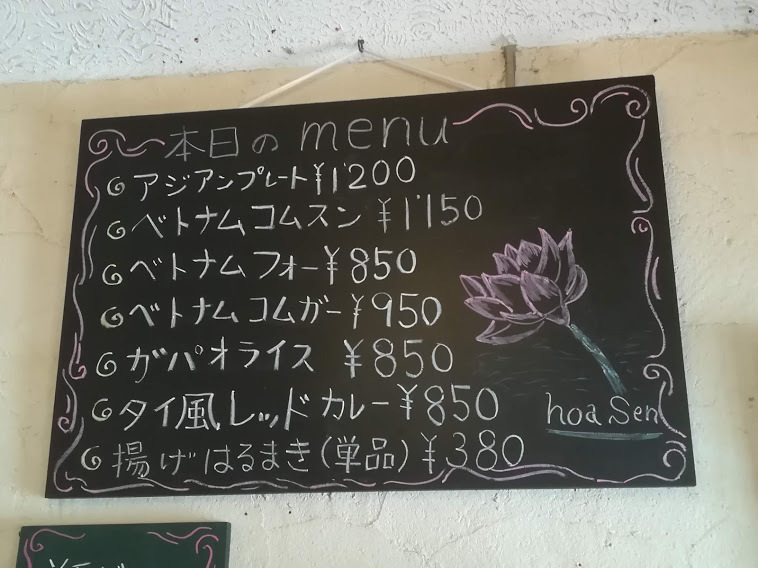 本日の menu
アジアンプレート ¥1'200
ベトナムコムスン ¥1'150
ベトナムフォー ¥850
ベトナムコムガー ¥950
ガパオライス ¥850
タイ風レッドカレー ¥850
揚げはるまき(単品) ¥380
hoa Sen